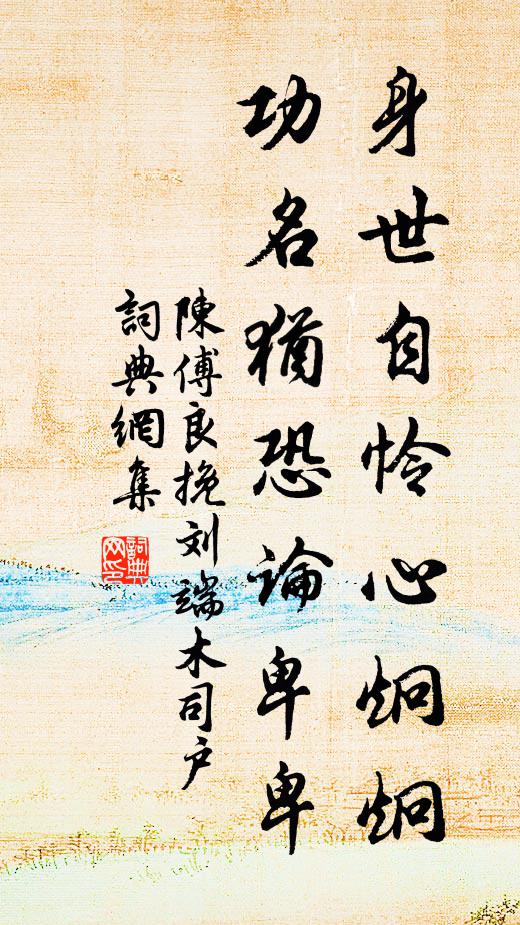 身世自怜心炯炯
功名猶恐論卑卑
陳傅良挽刘端木司户
詞典網集
詞典网印